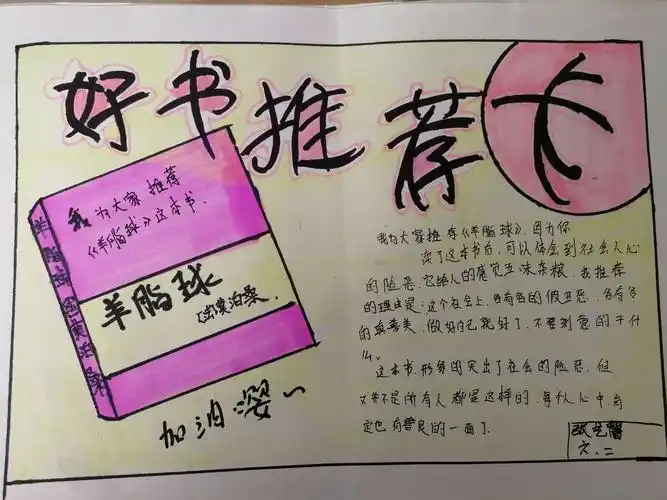 好书推荐卡
我为大家推荐
《羊脂球》这本书.
羊脂球
莫泊桑
羊脂球 莫泊桑
加油
我为大家推荐《羊脂球》,因为你
读了这本书后,可以体会到社会人心
的险恶,它给人的感觉五味杂粮.我推荐
的理由是:这个社会上,各有各的假丑恶,各有各
的真善美,做好自己就好了,不要刻意的干什
么.
这本书,形象的突出了社会的险恶,但
又并不是所有人都是这样的,每个人心中,肯
定也有善良的一面了.
六.二